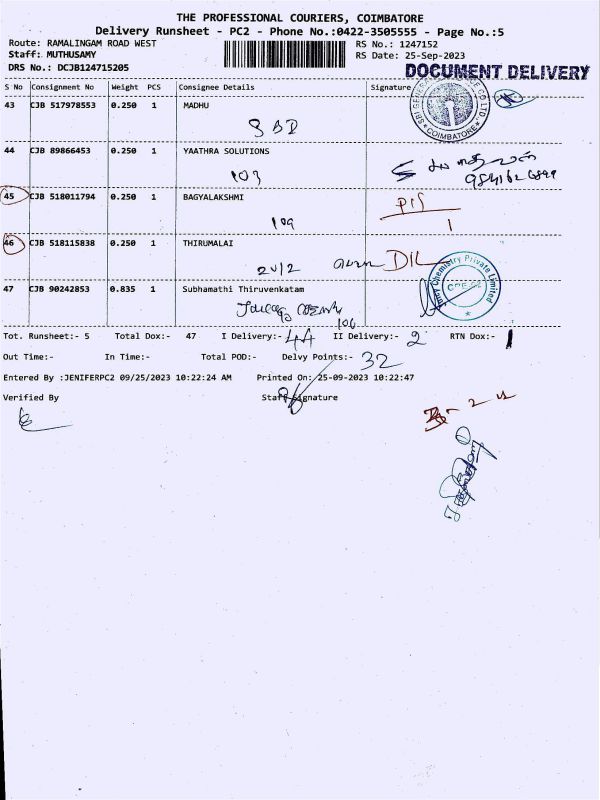 THE PROFESSIONAL COURIERS, COIMBATORE
Delivery Runsheet - PC2 - Phone No.:0422-3505555 - Page No.:5
Route: RAMALINGAM ROAD WEST RS No.: 1247152
Staff: MUTHUSAMY RS Date: 25-Sep-2023
DRS No.: DCJB124715205 DOCUMENT DELIVERY
S No Consignment No Weight PCS Consignee Details Signature
43 CJB 517978553 0.250 1 MADHU
SBI GENE CO LTD. COIMBATORE
44 CJB 89866453 0.250 1 YAATHRA SOLUTIONS
103
45 CJB 518011794 0.250 1 BAGYALAKSHMI
109
46 CJB 518115838 0.250 1 THIRUMALAI
20/2 DIL
47 CJB 90242853 0.835 1 Subhamathi Thiruvenkatam
106
Chemistry Private Limited
Tot. Runsheet:- 5 Total Dox:- 47 I Delivery:- 44 II Delivery:- 2 RTN Dox:- 1
Out Time:- In Time:- Total POD:- Delvy Points:- 32
Entered By :JENIFERPC2 09/25/2023 10:22:24 AM Printed On: 25-09-2023 10:22:47
Verified By Staff Signature